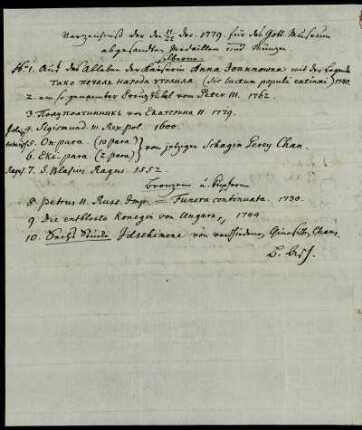 Verzeichniß der den 11/22 Dec. 1779. für das Gött. Museum
abgesandten Medaillen und Münzen
Silberne
No. 1. Auf das Ableben der Kaiserin Anna Ioannowna mit der Legende
тако печаль народа утолила (Sic luctum populi 1740.
2. ein so genannter Kreuzrubel von Peter III. 1762.
3. Полуполтинникъ von Екатепина II. 1779.
4. Sigismund III. Rex pol. 1600.
5. On para. (10 para)
6. Eki-para (2 para) } vom jetzigen Schagin Gerey Chan.
Ragus. 7. S. Blasius Ragus. 1552.
Bronzene u. Kupferne
8. Petrus II. Russ. Imp. = Funera continuata. 1730.
9. Die entblößte Königin von Ungarn, 1744.
10. Sechs Stück von verschiedenen Chans.